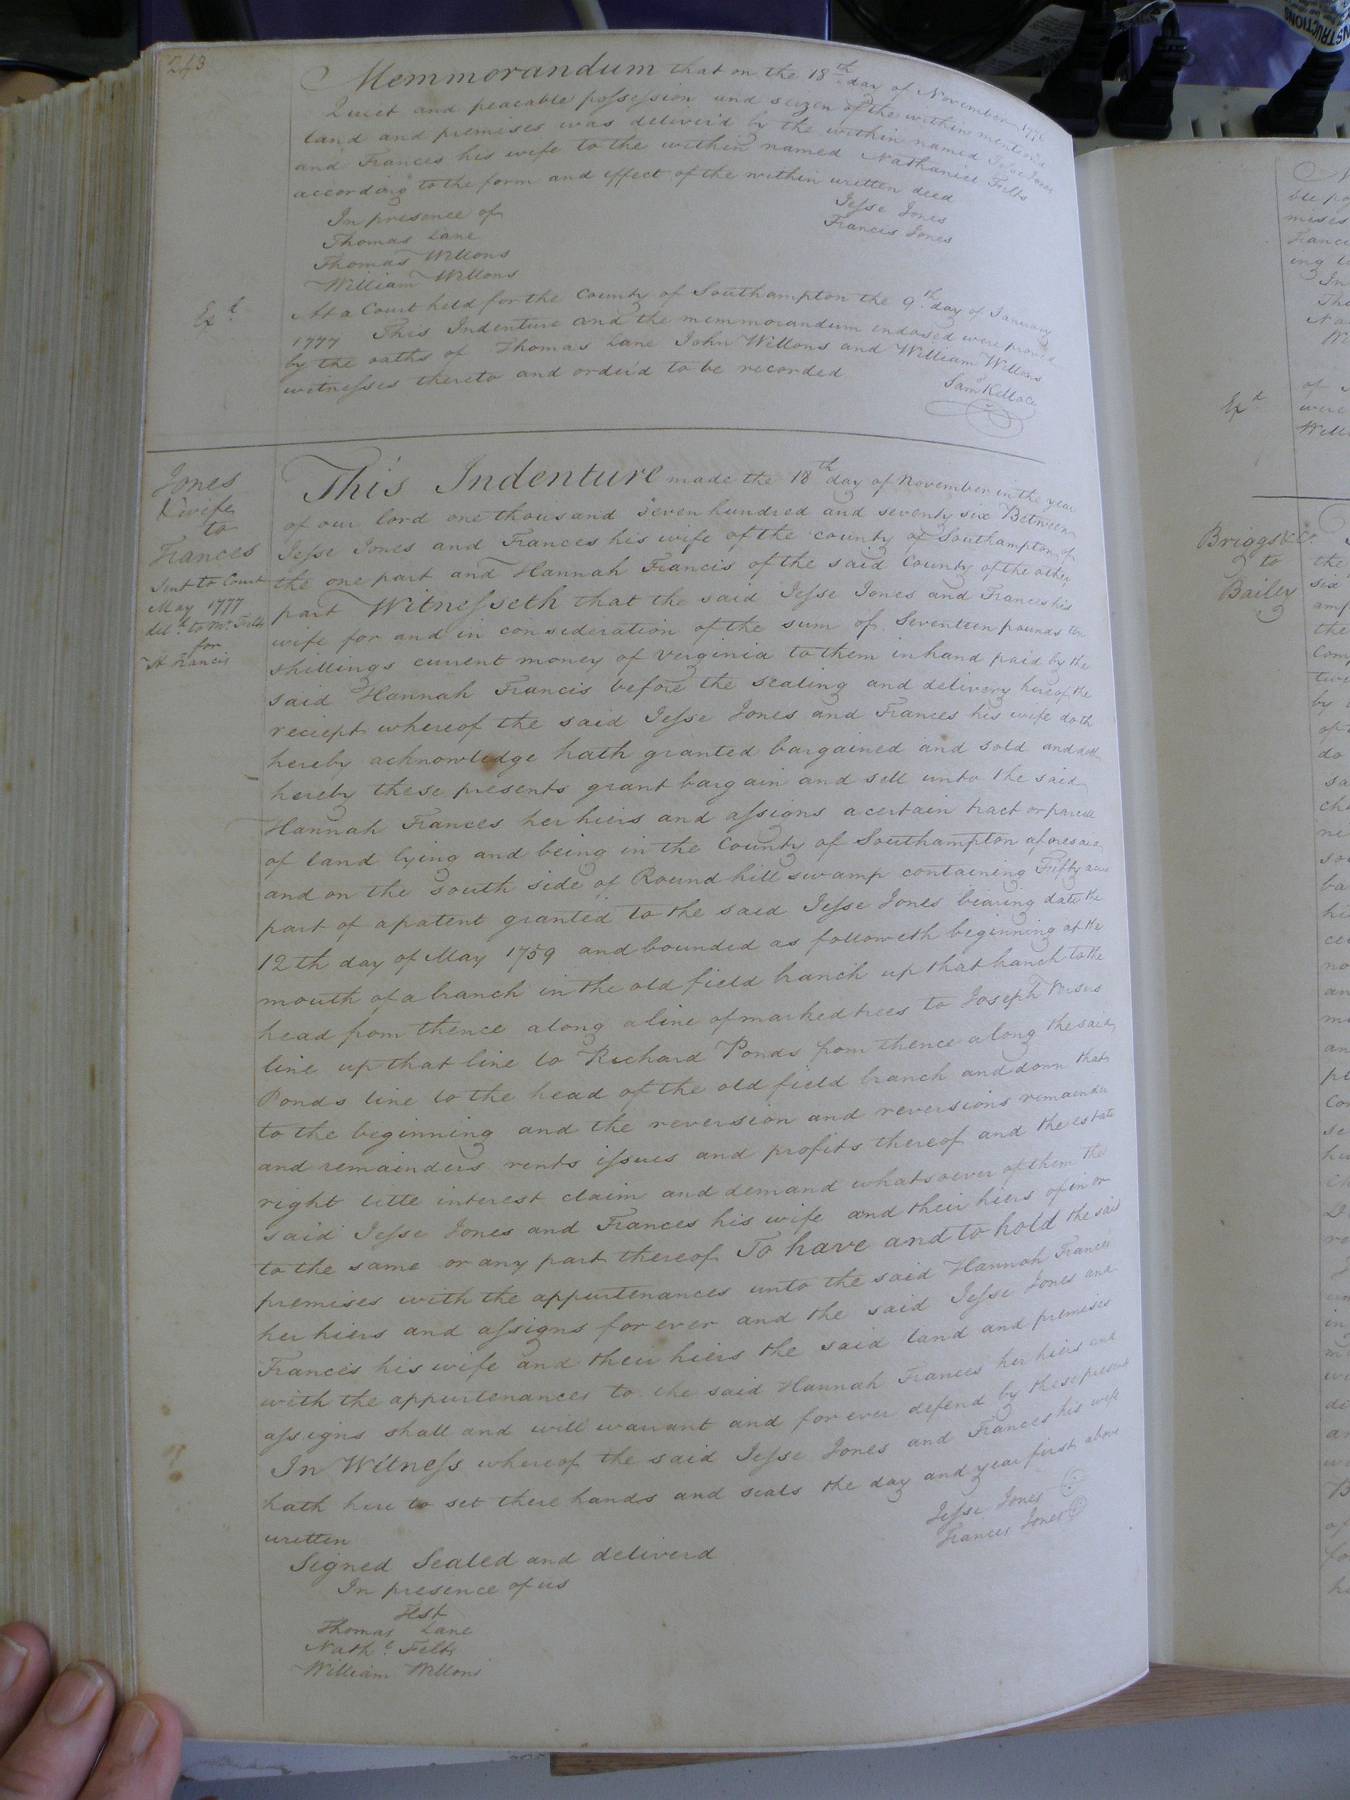 243
Memmorandum that on the 18th day of November 1776
Quiet and peacable possession and seizen of the within mention'd
land and premises was deliver'd by the within named Jesse Jones
and Frances his wife to the within named Nathaniel Felts
according to the form and effect of the within written deed
In presence of
Thomas Lane
Thomas Wellons
William Wellons
Jesse Jones
Frances Jones
Exd
At a Court held for the County of Southampton the 9th day of January
1777 This Indenture and the memmorandum indorsed were proved
by the oaths of Thomas Lane John Wellons and William Wellons
witnesses thereto and order'd to be recorded
Saml Kello cc
Jones
& wife
to
Frances
Sent to Court
May 1777
deld to Mr. Felts
for
H Francis
This Indenture made the 18th day of November in the year
of our lord one thousand seven hundred and seventy six Between
Jesse Jones and Frances his wife of the county of Southampton of
the one part and Hannah Francis of the said County of the other
part Witnesseth that the said Jesse Jones and Frances his
wife for and in consideration of the sum of Seventeen pounds ten
shillings current money of Verginia to them in hand paid by the
said Hannah Francis before the sealing and delivery hereof the
reciept whereof the said Jesse Jones and Frances his wife doth
hereby acknowledge hath granted bargained and sold and doth
hereby these presents grant bargain and sell unto the said
Hannah Frances her hiers and assigns a certain tract or parcell
of land lying and being in the County of Southampton aforesaid
and on the south side of Round hill swamp containing Fifty acres
part of a patent granted to the said Jesse Jones bearing date the
12th day of May 1759 and bounded as followeth beginning at the
mouth of a branch in the old field branch up that branch to the
head from thence along a line of marked trees to Joseph
line up that line to Richard Ponds from thence along the said
Ponds line to the head of the old field branch and down that
to the beginning and the reversion and reversions remainder
and remainders rents issues and profits thereof and the estate
right title interest claim and demand whatsoever of them the
said Jesse Jones and Frances his wife and their hiers of in or
to the same or any part thereof To have and to hold the said
premises with the appurtenances unto the said Hannah Frances
her hiers and assigns for ever and the said Jesse Jones and
Frances his wife and their hiers the said land and premises
with the appurtenances to the said Hannah Frances her hiers and
assigns shall and will warrant and for ever defend by these presents
In Witness whereof the said Jesse Jones and Frances his wife
hath here to set there hands and seals the day and year first above
written
Jesse Jones
Frances Jones
Signed Sealed and deliverd
In presence of us
Test
Thomas Lane
Nathl Felts
William Wellons
Exd
Briggs &c.
to
Bailey